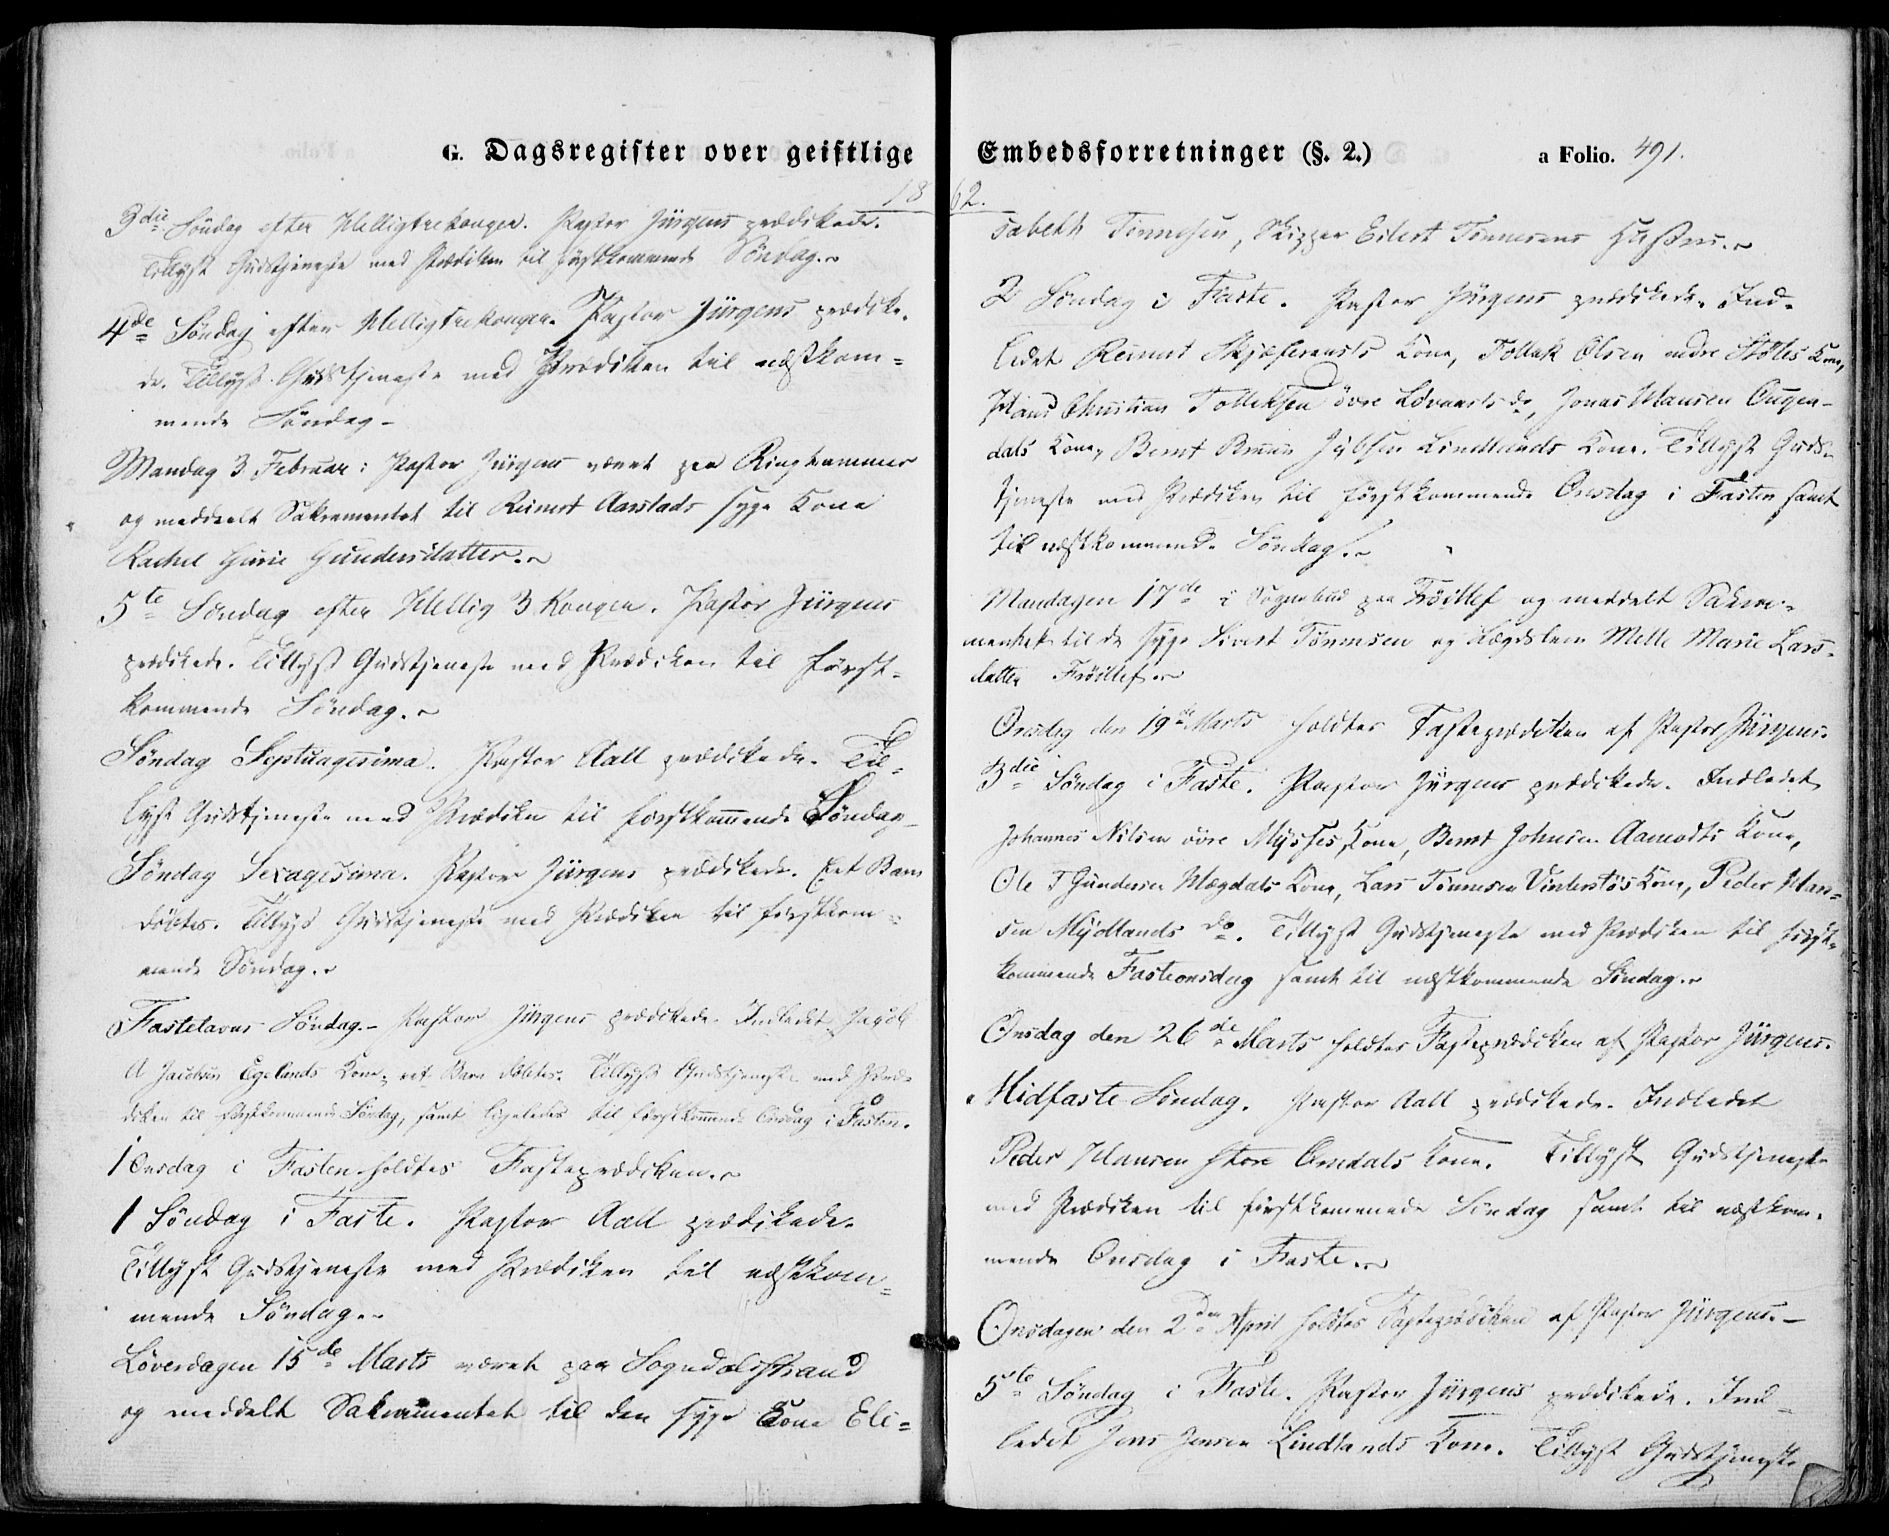 G. Dagsregister over geistlige
18
3die Søndag efter Helligtrekonger. Pastor Jürgens prædikede.
Tillyst Gudstjeneste med Prædiken til førstkommende Søndag.
4de Søndag efter Helligtrekonger. Pastor Jürgens prædike-
de. Tillyst Gudstjeneste med Prædiken til næstkom=
mende Søndag-
Mandag 3 Februar: Pastor Jürgens været paa
og meddeelt Sakramentet til Reinert Aarstads syge Kone
Rachel Gurie Gundersdatter.
5te Søndag efter Hellig 3 Konger. Pastor Jürgens
prædikede. Tillyst Gudstjeneste med Prædiken til først-
kommende Søndag.
Søndag Septuagesima. Pastor Aall prædikede. Til-
lyst Gudstjeneste med Prædiken til førstkommende Søndag-
Søndag Sexagesima. Pastor Jürgens prædikede. Eet Barn
døbtes. Tillyst Gudstjeneste med Prædiken til førstkom=
mende Søndag.
Fastelavns Søndag.- Pastor Jürgens prædikede. Indledet Jacob
A Jacobsen Egelands Kone, eet Barn døbtes. Tillyst Gudstjeneste med Præ-
diken til førstkommende Søndag, samt ligeledes til førstkommende Onsdag i Fasten.
1 Onsdag i Fasten holdtes Fasteprædiken.
1 Søndag i Faste. Pastor Aall prædikede.
Tillyst Gudstjeneste med Prædiken til næstkom=
mende Søndag.
Løverdagen 15de Marts været paa Sogndalsstrand
og meddelt Sakramentet til den syge Kone Eli=
Embedsforretninger (§. 2.)
a Folio. 491.
62.
sabeth Tønnesen, Skipper Eilert Tønnesens Hustru.
2 Søndag i Faste. Pastor Jürgens prædikede. Ind-
ledet Reinert Kone, Tollak Olsen Kone,
Hans Christian Tolleksen øvre do, Jonas Hansen
dals Kone, Bernt Lindlands Kone. Tillyst Guds-
tjeneste med Prædiken til førstkommende Onsdag i Fasten samt
til næstkommende Søndag.
Mandagen 17de i Sognebud paa Frøitlef og meddelt Sakra-
mentet til de syge Sivert Tønnesen og Lægdslem Mette Marie Lars-
datter Frøitlef.
Onsdag den 19de Marts holdtes Fasteprædiken af Pastor Jürgens.
3die Søndag i Faste. Pastor Jürgens prædikede. Indledet
Johannes Nilsen øvre Mysses Kone, Bernt Johnsen Aamodts Kone,
Ole T Gundersen Mægdals Kone, Lars Tønnesen Vinterstøs Kone, Peder Han=
sen Mydlands do. Tillyst Gudstjeneste med Prædiken til først-
kommende Fasteonsdag samt til næstkommende Søndag.
Onsdag den 26de Marts holdtes Fasteprædiken af Pastor Jürgens.
Midfaste Søndag. Pastor Aall prædikede. Indledet
Peder Hansen store Omdals Kone. Tillyst Gudstjeneste
med Prædiken til førstkommende Søndag samt til næstkom-
mende Onsdag i Faste.
Onsdagen den 2den April holdtes Fasteprædiken af Pastor Jürgens.-
5te Søndag i Faste. Pastor Jürgens prædikede. Ind-
ledet Jens Jensen Lindlands Kone. Tillyst Gudstjeneste